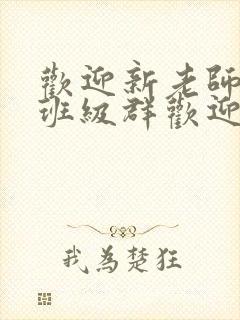 歡迎新老師
班級群歡迎
我為楚狂